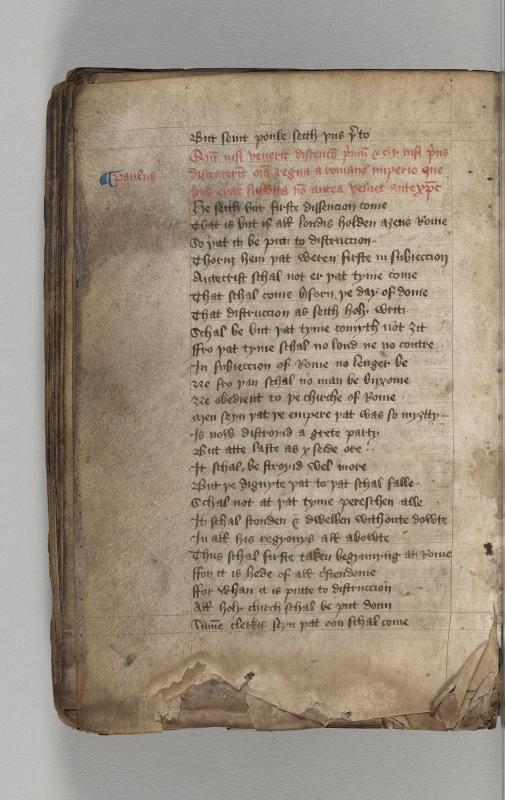 But seint poule seith þus þ'to
Qm̄ nisi venerit discencio p'mū & c̄ nisi p'us
¶ paulus
discesserit oīa regna a romano imperio que
p'us erāt subdita nō antea veniet antexp̄c
He seith but furste dissencion come
That is but if all londis holden aȝens Rome
So þat it be putt to distruccion
Thoruȝ hem þat weren furste in subieccion
Antecrist schal not er þat tyme come
That schal come biforn þe day of dome
That distruccion as seith holy writt
Schal be but þat tyme comyth not ȝit
ffro þat tyme schal no lond ne no contre
In subieccion of Rome no lenger be
Ne fro þan schal no man be buxome
Ne obedient to þe chirche of Rome
Men seyn þat þe empere þat was so myȝtty
Is now distroyid a grete party
But atte laste as y seide ore
It schal be stroyid wel more
But þe dignyte þat to þat schal falle
Schal not at þat tyme pereschen alle
It schal stonden & dwellen withoute dowte
In all his regyonys all abowte
Thus schal furste taken begynnyng at Rome
ffor it is hede of all c'stendome
ffor whan it is putte to distruccion
All holy chirch schal be put doun
Summe clerkis seyn þat oon schal come